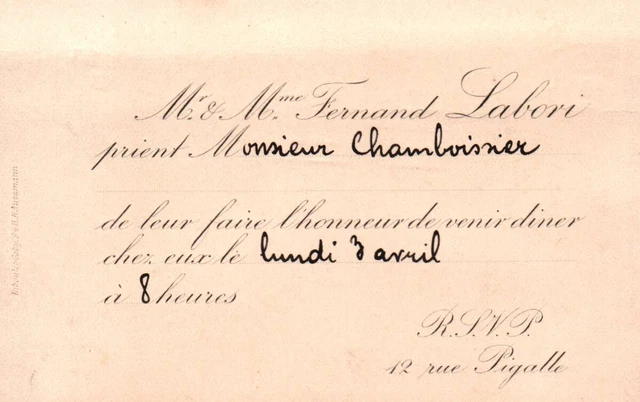 Mr. & Mme. Fernand Labori
prient Monsieur Chamboissier
de leur faire l'honneur de venir diner
chez eux le lundi 3 avril
à 8 heures
R.S.V.P.
12 rue Pigalle